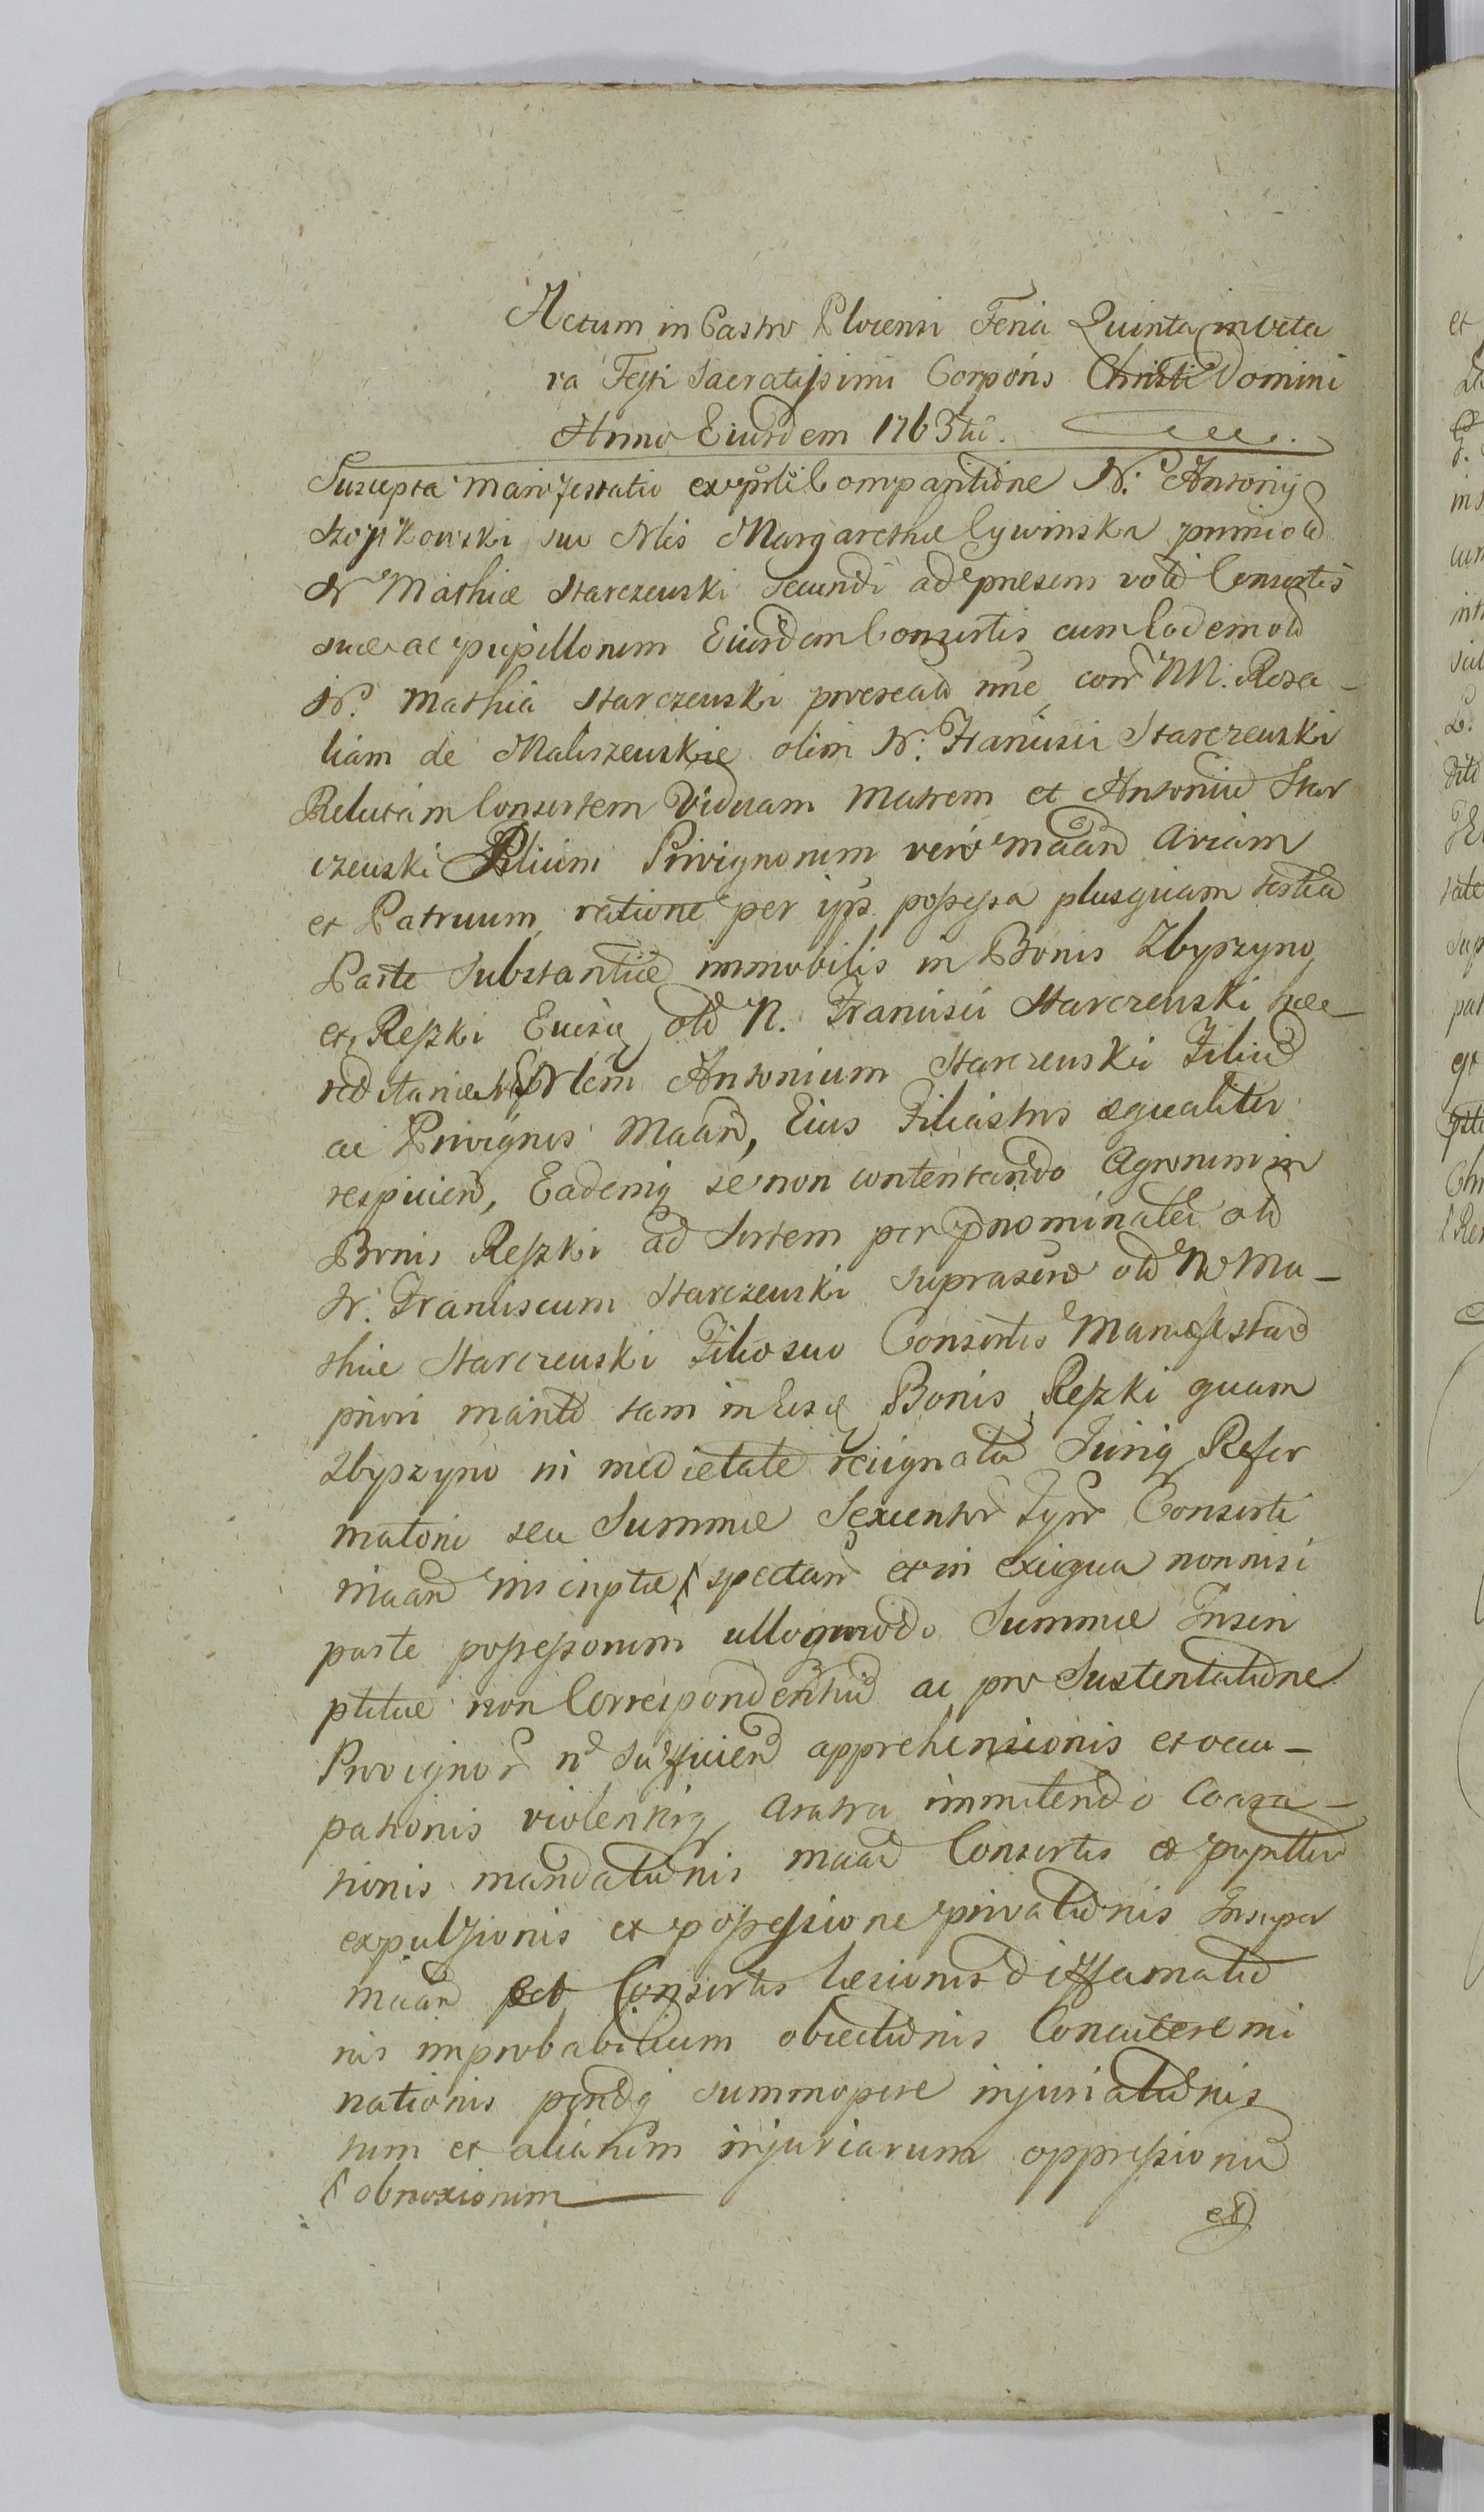 Actum in Castro Plocensi Feria Quinta in octa
va Festi Sacratissimi Corporis Christi Domini
Anno Eiusdem 1763tio.
Suscepta manifestatio ex psnli Comparitione N. Antonij
suo Nlis Margarethae Cywinska primi old
N Mathiae Starczewski secundi ad praesens voti Consortis
suae ac pupillorum Eiusdem Consortis cum Eodem old
N. Mathia Starczewski procreat nne cont NN. Rosa-
liam de Maliszewskie olim N. Francisci Starczewski
Relictam Consortem Viduam Matrem et Antoniu Star
czewski Filium Privignorum vero maand Aviam
et Patruum ratione per ips possessa plusquam tertia
Parte substantiae immobilis in Bonis Zbyszyno
et Reszki Euisq old N. Francisci Starczewski hae-
reditariae Nlem Antonium Starczewski Filiu
ac Privignos Maand, Eius Filiastros aequaliter
respiciend, Eademq se non contentando Agrorum in
Bonis Reszki ad Sortem per pnominatu old
N. Franciscum Starczewski suprascro old No Ma-
thiae Starczewski Filio suo Consortis Manifestand
priori marito tam in Eisq Bonis Reszki quam
Zbyszyno in medietate resignata Juriq Refor
matorio seu Summae Sexcentor Tynf Consorti
maand inscriptae spectan et in exigua non nisi
parte possessorum ulloqmodo Summae Inscri
ptitiae non Correspondentiu ac pro Sustentatione
Privignor n sufficien apprehensionis et occu-
pationis violentiq aratra immitendo Coara-
tionis mandationis maand Consortis et pupillor
expulsionis et possessione privationis Insuper
maand Consortis laesionis diffamatio
nis improbabilium obiectionis Concitere mi
nationis pendq summopere injuriationis
tum et aliarum injuriarum oppressioniu
obnoxiorum
et